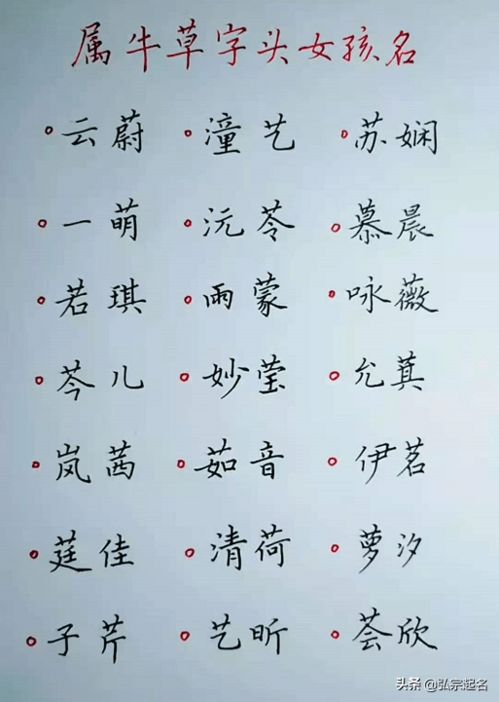 属牛草字头女孩名
云蔚 潼艺 苏娴
一萌 沅苓 慕晨
若琪 雨蒙 咏薇
芩儿 妙莹 允萁
岚茜 茹音 伊茗
莛佳 清荷 萝汐
子芹 艺昕 荟欣
头条 @弘宗起名